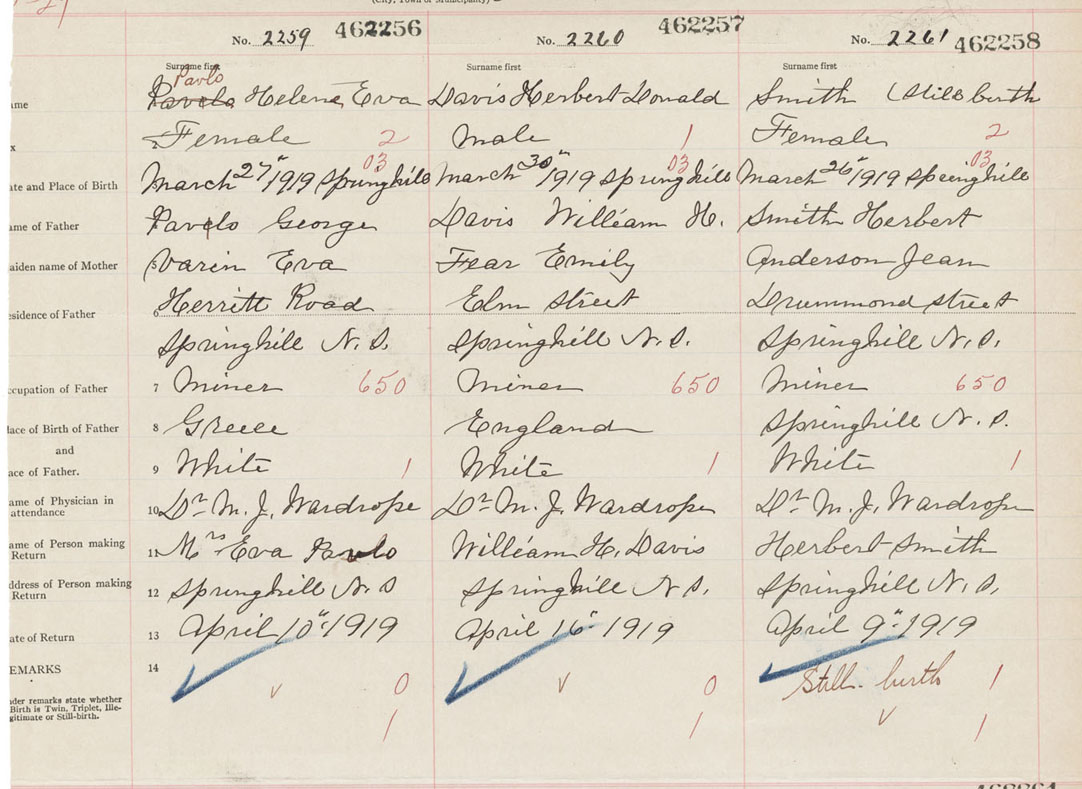 (City, Town or Municipality)
No. 2259 462256 No. 2260 462257 No. 2261 462258
Surname first Surname first Surname first
Pavlo
ame Pavelo Helena Eva Davis Herbert Donald Smith (Still birth
x Female 2 Male 1 Female 2
03 03 03
ate and Place of Birth March 27" 1919 Springhill March 30" 1919 Springhill March 26" 1919 Springhill
ame of Father Pavlo George Davis William H. Smith Herbert
aiden name of Mother 5 Varin Eva Fear Emily Anderson Jean
esidence of Father 6 Herritt Road Elm Street Drummond Street
Springhill N.S. Springhill N.S. Springhill N.S.
ccupation of Father 7 Miner 650 Miner 650 Miner 650
lace of Birth of Father 8 Greece England Springhill N.S.
and
ace of Father. 9 White 1 White 1 White 1
ame of Physician in attendance 10 Dr M. J. Wardrope Dr M. J. Wardrope Dr M. J. Wardrope
ame of Person making Return 11 Mrs Eva Pavlo William H. Davis Herbert Smith
ddress of Person making Return 12 Springhill N.S Springhill N.S. Springhill N.S.
ate of Return 13 April 10" 1919 April 16" 1919 April 9" 1919
EMARKS 14 Still birth 1
nder remarks state whether v 0 v 0
Birth is Twin, Triplet, Ille-
gitimate or Still-birth. 1 1 v 1